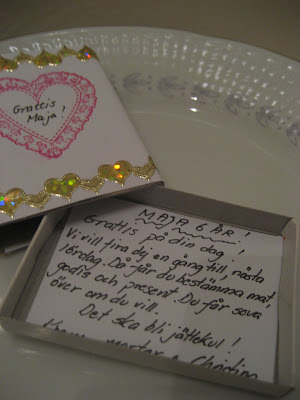 Grattis,
Maja!
MAJA 6 ÅR!
Grattis på din dag!
Vi vill fira dig en gång till nästa
lördag. Då får du bestämma mat,
godis och present. Du får sova
över om du vill.
Det ska bli jättekul!
Kram